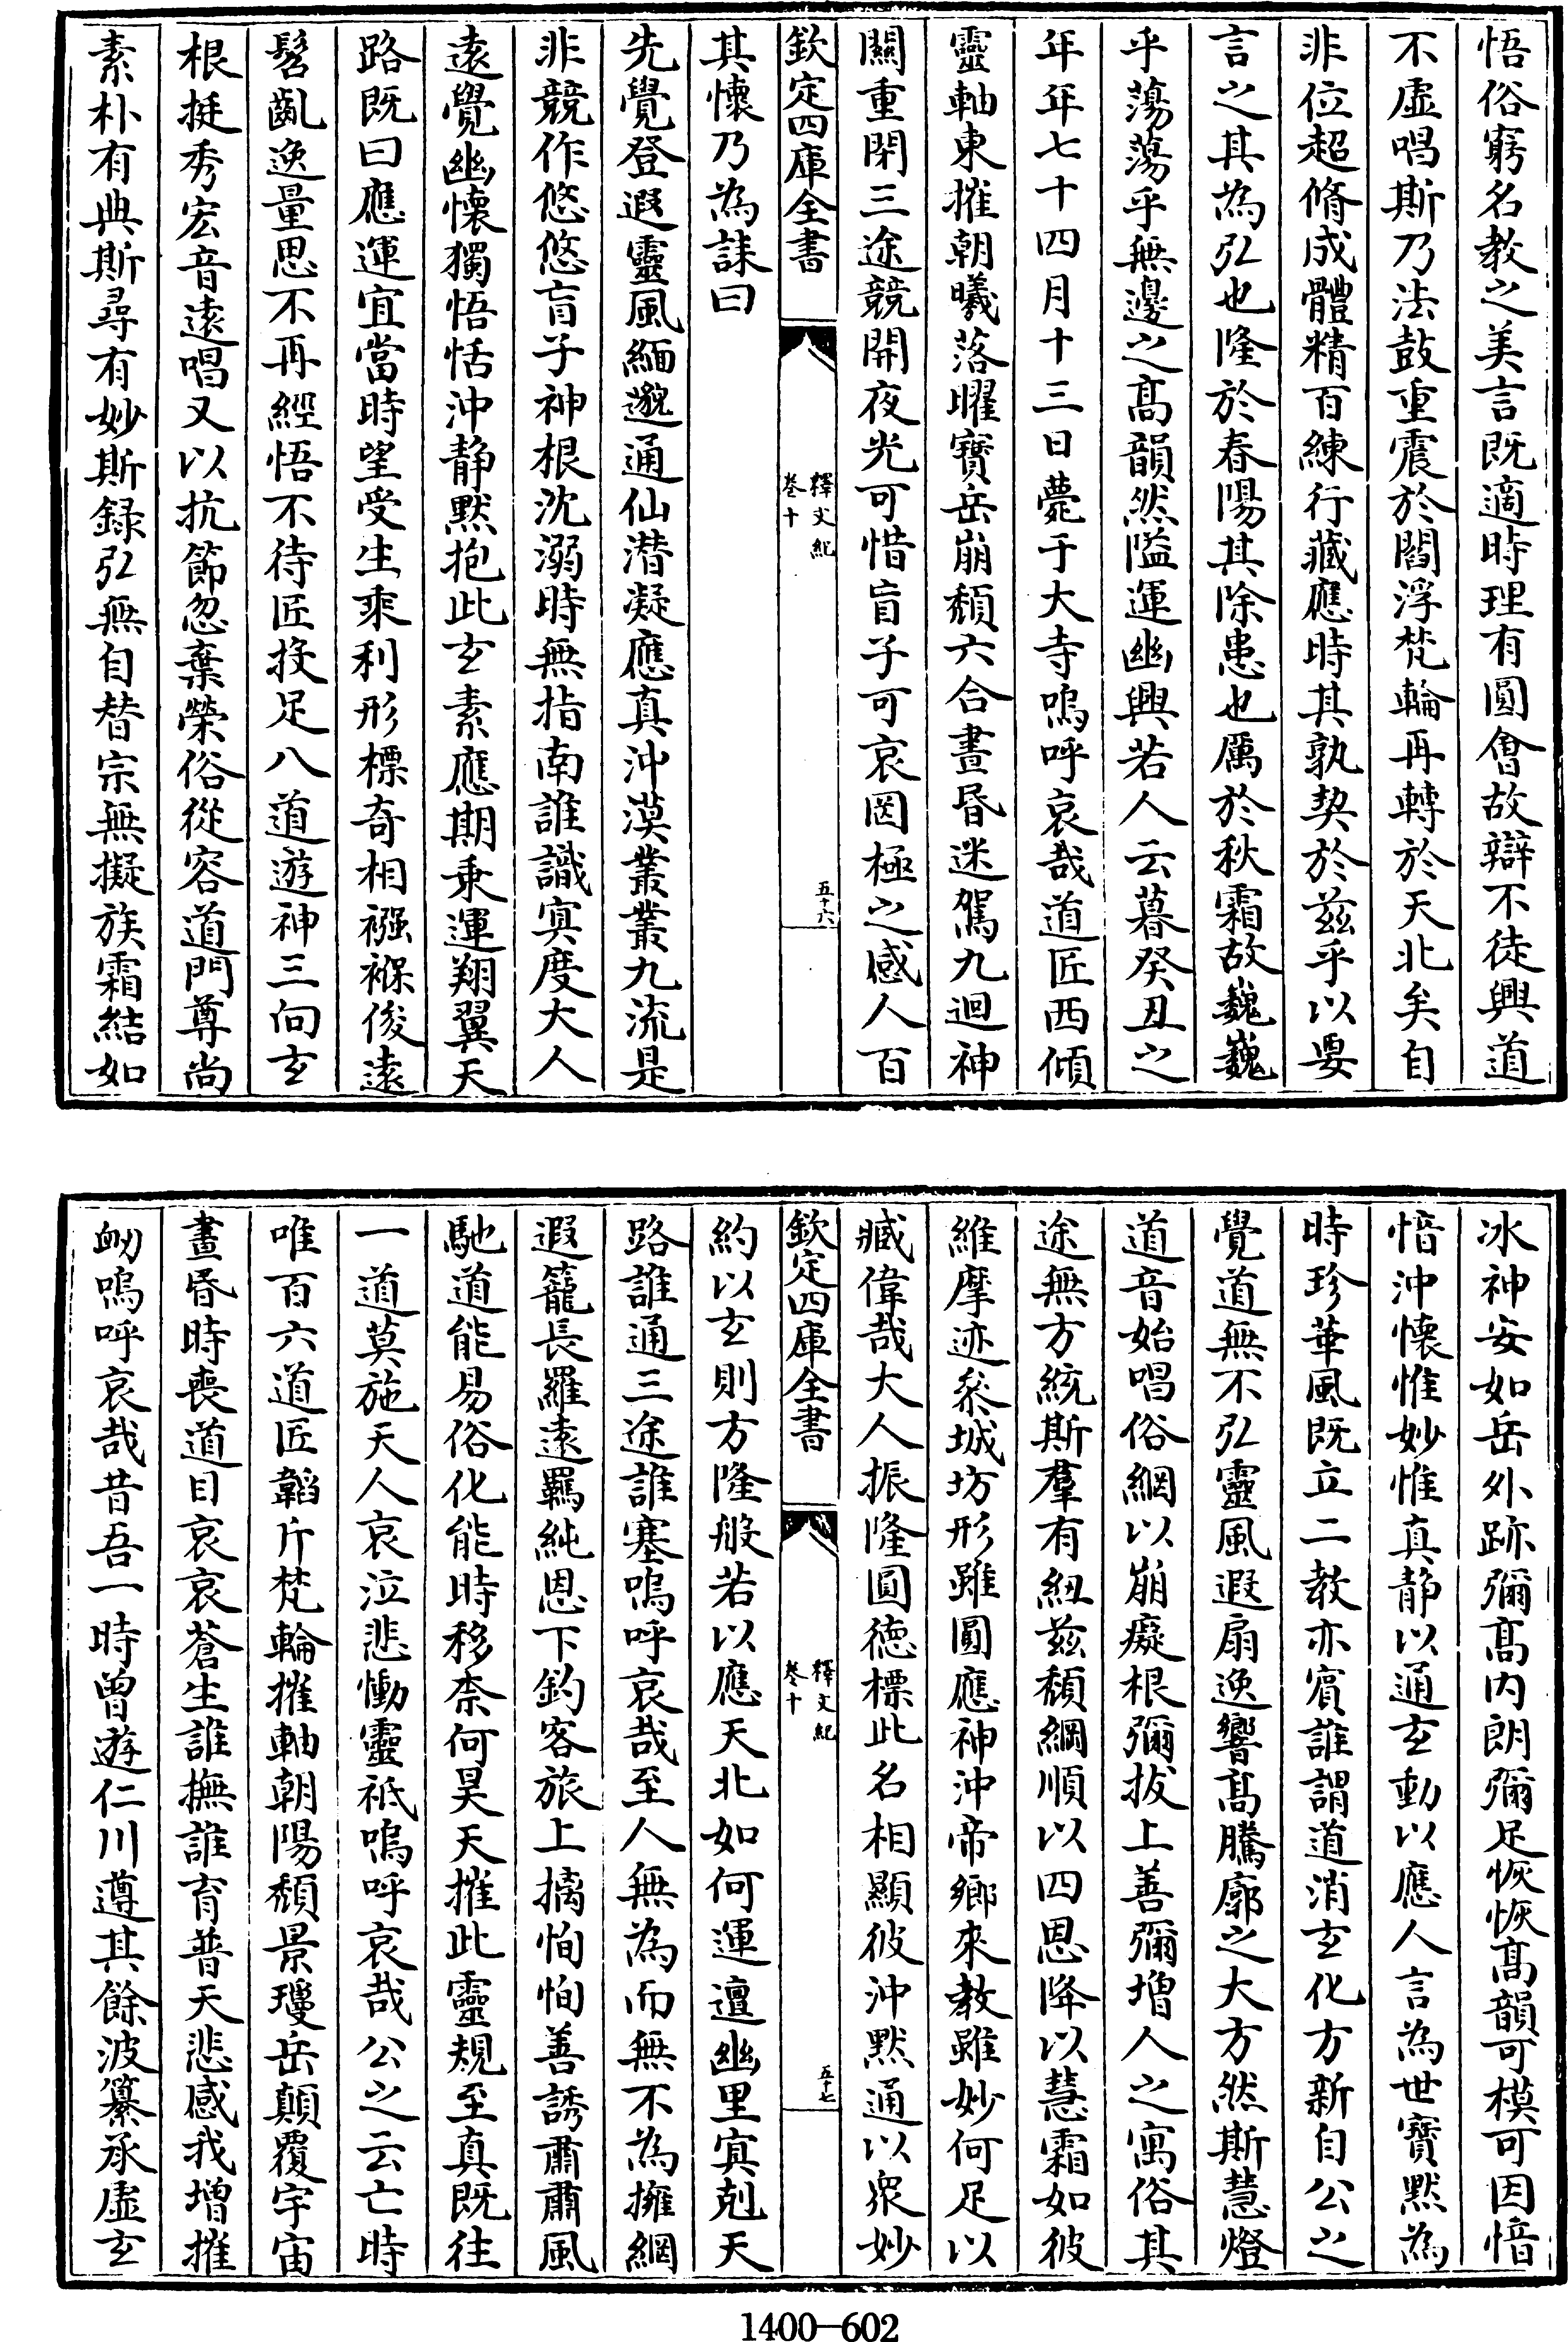 悟俗窮名教之美言既適時理有圓會故辯不徒興道
不虛唱斯乃法鼓重震於閻浮梵輪再轉於天北矣自
非位超脩成體精百練行藏應時其孰契於茲乎以要
言之其為弘也隆於春陽其除患也厲於秋霜故巍巍
乎蕩蕩乎無邊之髙韻然隘運幽興若人云暮癸丑之
年年七十四月十三日薨于大寺嗚呼哀哉道匠西傾
靈軸東摧朝曦落曜寶岳崩頹六合晝昏迷駕九迴神
關重閉三途競開夜光可惜盲子可哀罔極之感人百
欽定四庫全書
釋文紀
卷十
五十六
其懷乃為誄曰
先覺登遐靈風緬邈通仙潛凝應真沖漠叢叢九流是
非競作悠悠盲子神根沈溺時無指南誰識冥度大人
逺覺幽懷獨悟恬沖静黙抱此玄素應期乘運翔翼天
路既曰應運宜當時望受生乘利形標奇相襁褓俊逺
髫齓逸量思不再經悟不待匠投足八道遊神三向玄
根挺秀宏音逺唱又以抗節忽棄榮俗從容道門尊尚
素朴有典斯尋有妙斯録弘無自替宗無擬族霜結如
冰神安如岳外跡彌髙内朗彌足恢恢髙韻可模可因愔
愔沖懷惟妙惟真静以通玄動以應人言為世寶黙為
時珍華風既立二教亦賓誰謂道消玄化方新自公之
覺道無不弘靈風遐扇逸響髙騰廓之大方然斯慧燈
道音始唱俗網以崩癡根彌拔上善彌增人之寓俗其
途無方統斯羣有紐茲頹綱順以四恩降以慧霜如彼
維摩迹參城坊形雖圓應神沖帝鄉來教雖妙何足以
臧偉哉大人振隆圓徳標此名相顯彼沖黙通以衆妙
欽定四庫全書
釋文紀
卷十
五十七
約以玄則方隆般若以應天北如何運邅幽里冥剋天
路誰通三途誰塞嗚呼哀哉至人無為而無不為擁網
遐籠長羅逺羈純恩下釣客旅上擒恂恂善誘肅肅風
馳道能易俗化能時移柰何昊天摧此靈規至真既往
一道莫施天人哀泣悲慟靈祇嗚呼哀哉公之云亡時
唯百六道匠韜斤梵輪摧軸朝陽頹景瓊岳顛覆宇宙
晝昏時喪道目哀哀蒼生誰撫誰育普天悲感我增摧
衂嗚呼哀哉昔吾一時曽遊仁川遵其餘波纂承虛玄
1400—602